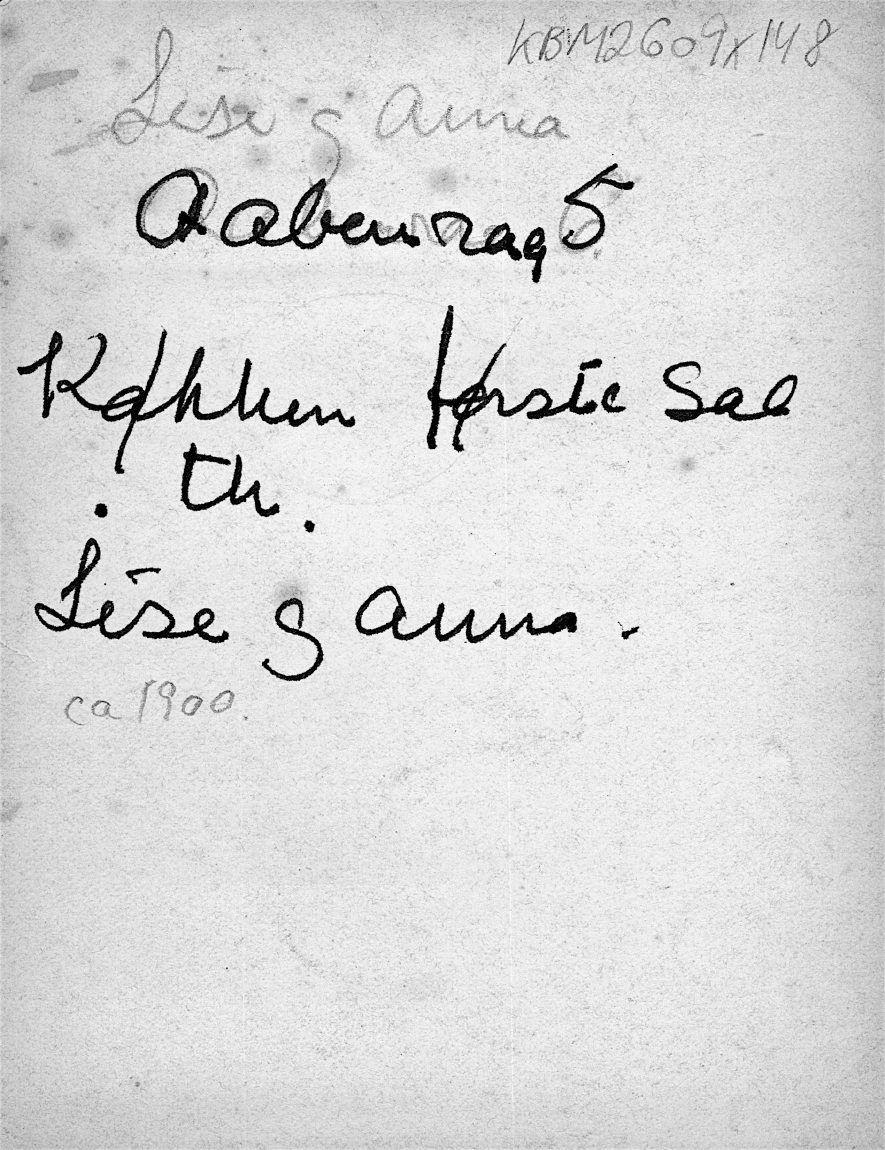 KBM2609x148
Lise og Anna
Aabenraa 5
Køkken Første Sal
. th.
Lise og Anna.
ca 1900.